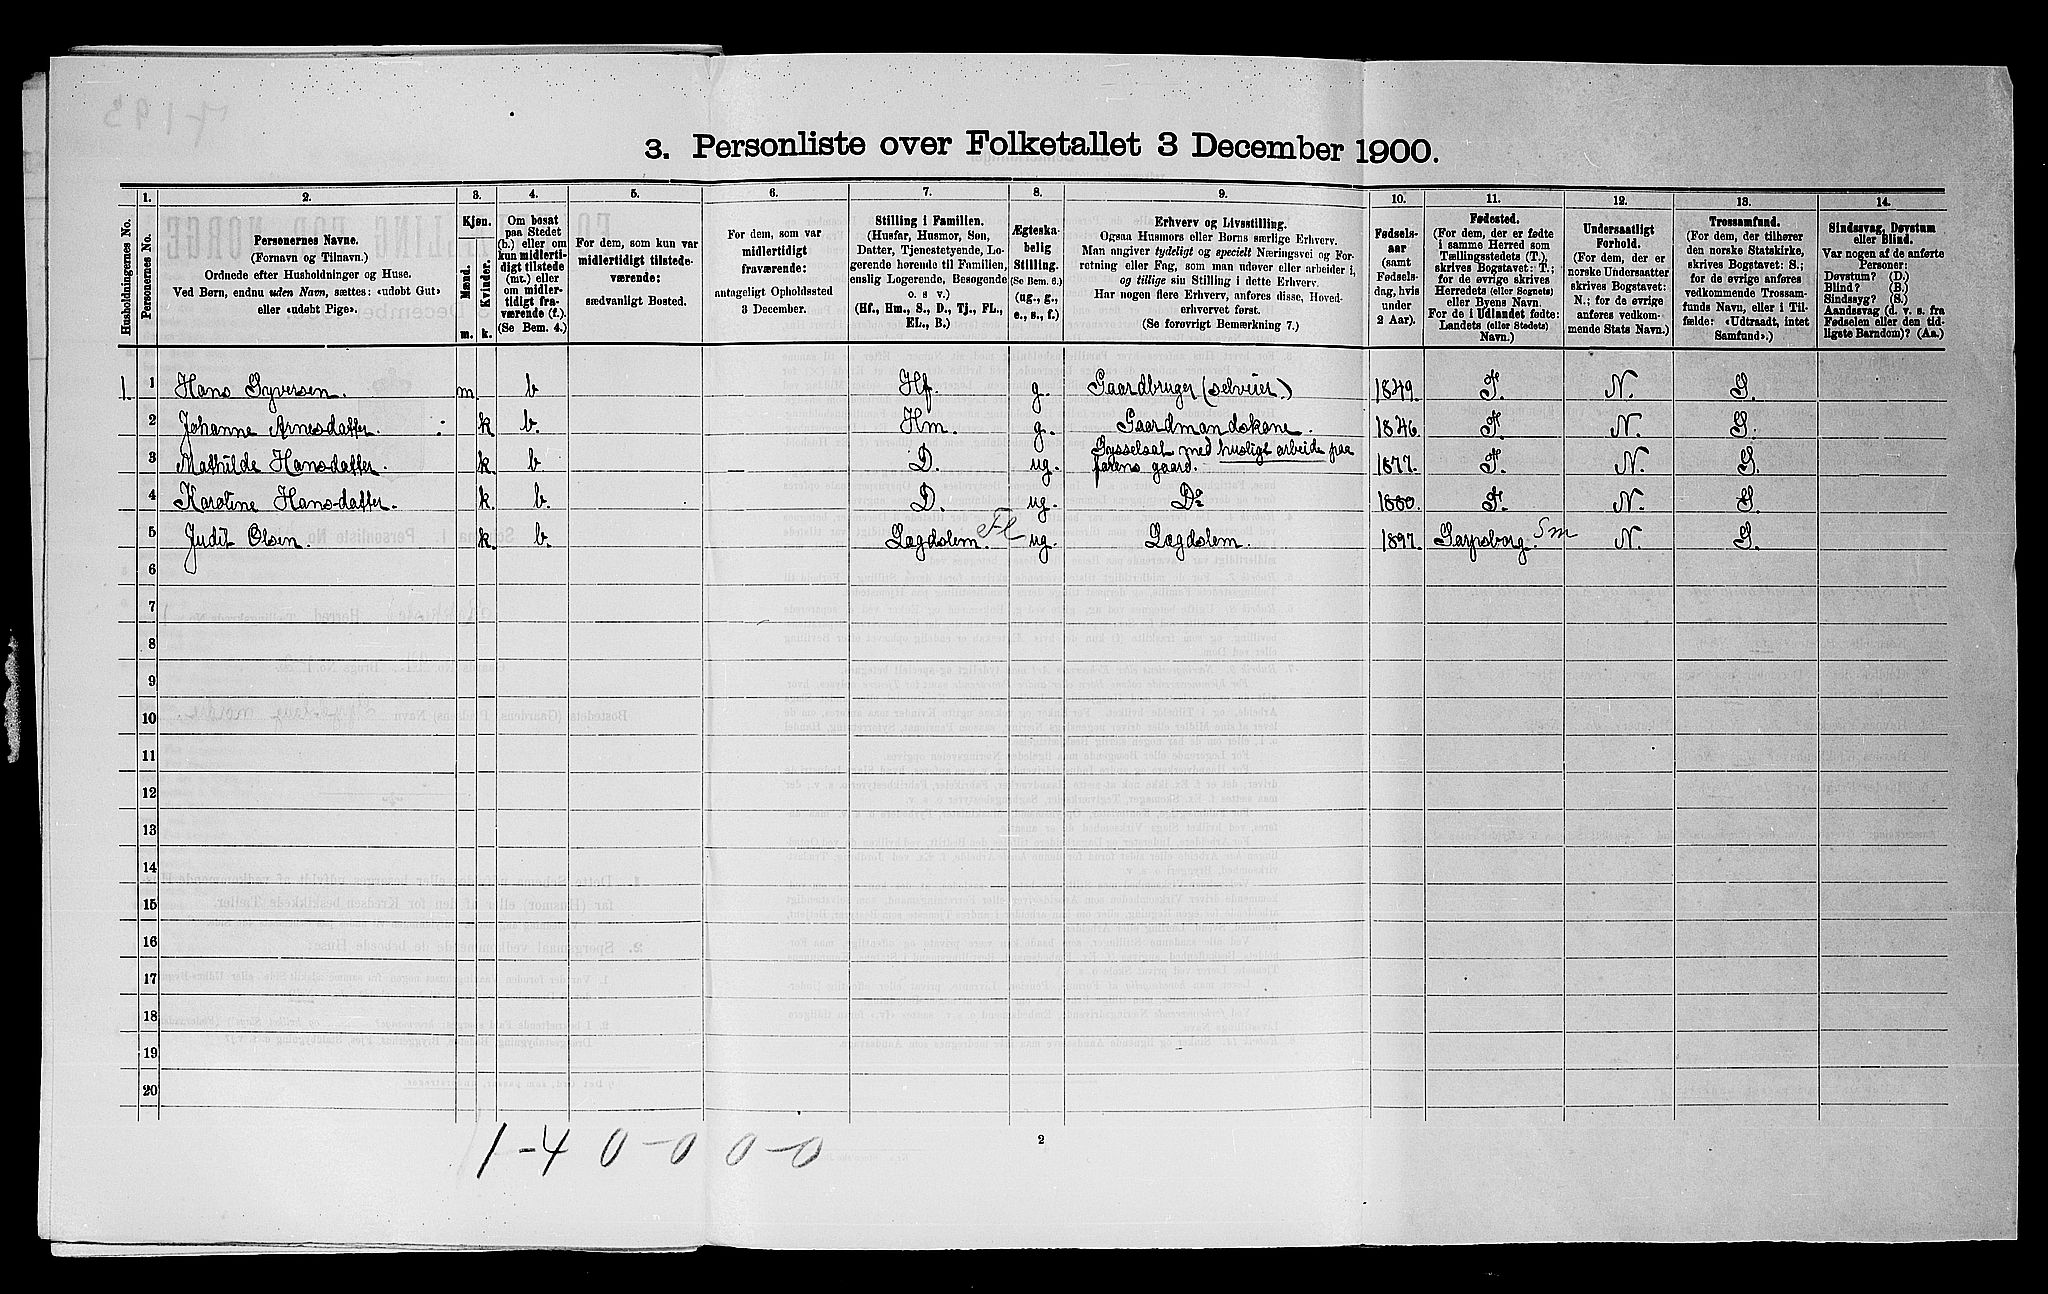 3. Personliste over Folketallet 3 December 1900.
Husholdningernes No.
1. Personernes No.
2. Personernes Navne.
(Fornavn og Tilnavn.)
Ordnede efter Husholdninger og Huse.
Ved Børn, endnu uden Navn, sættes: «udøbt Gut»
eller «udøbt Pige».
3. Kjøn.
Mænd. Kvinder.
m. k.
4. Om bosat
paa Stedet
(b.) eller om
kun midlerti-
digt tilstede
(mt.) eller
om midler-
tidigt fra-
værende (f.).
(Se Bem. 4.)
5. For dem, som kun var
midlertidigt tilstede-
værende:
sædvanligt Bosted.
6. For dem, som var
midlertidigt
fraværende:
antageligt Opholdssted
3 December.
7. Stilling i Familien.
(Husfar, Husmor, Søn,
Datter, Tjenestetyende, Lo-
gerende hørende til Familien,
enslig Logerende, Besøgende
o. s v.)
(Hf., Hm., S., D., Tj., FL.,
EL., B.)
8. Ægteska-
belig
Stilling.
(Se Bem. 6.)
(ug., g.,
e., s., f.)
9. Erhverv og Livsstilling.
Ogsaa Husmors eller Børns særlige Erhverv.
Man angiver tydeligt og specielt Næringsvei og For-
retning eller Fag, som man udøver eller arbeider i,
og tillige sin Stilling i dette Erhverv.
Har nogen flere Erhverv, anføres disse, Hoved-
erhvervet først.
(Se forøvrigt Bemærkning 7.)
10. Fødsels-
aar
(samt
Fødsels-
dag, hvis
under
2 Aar).
11. Fødested.
(For dem, der er fødte
i samme Herred som
Tællingsstedets (T.),
skrives Bogstavet: T.;
for de øvrige skrives
Herredets (eller Sognets)
eller Byens Navn.
For de i Udlandet fødte:
Landets (eller Stedets)
Navn.)
12. Undersaatligt
Forhold.
(For dem, der er
norske Undersaatter
skrives Bogstavet:
N.; for de øvrige
anføres vedkom-
mende Stats Navn.)
13. Trossamfund.
(For dem, der tilhører
den norske Statskirke,
skrives Bogstavet: S.;
for de øvrige anføres
vedkommende Trossam-
funds Navn, eller i Til-
fælde: «Udtraadt, intet
Samfund».)
14. Sindssvag, Døvstum
eller Blind.
Var nogen af de anførte
Personer:
Døvstum? (D.)
Blind? (B.)
Sindssyg? (S.)
Aandssvag (d. v. s. fra
Fødselen eller den tid-
ligste Barndom)? (Aa.)
1. 1 Hans Syversen. m. b Hf. g. Gaardbruger (selveier.) 1849. T. N. S.
2 Johanne Arnesdatter. k b. Hm. g. Gaardmandskone. 1846. T. N. S.
3 Mathilde Hansdatter. k. b D. ug. Sysselsat med husligt arbeide paa
farens gaard. 1877. T. N. S.
4 Karoline Hansdatter. k. b. D. ug. Do 1880. T. N. S.
5 Judit Olsen. k. b. Lægdslem. FL ug. Lægdslem. 1897. Sarpsborg. Sm N. S.
6
7
8
9
10
11
12
13
14
15
16
17
18
19
20
1-4 0-0 0-0
2